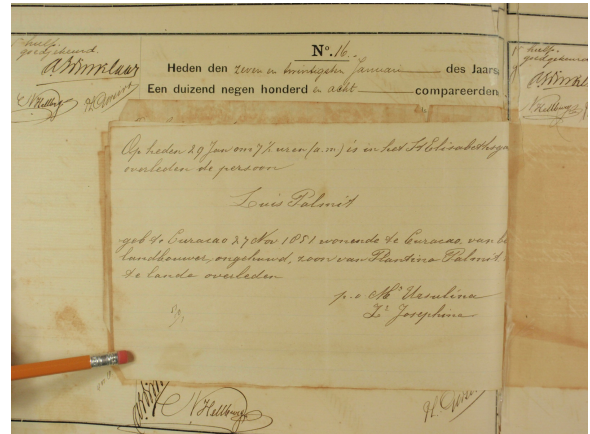 hulp.
goedgekeurd.
A. Winklaar
N Hellburg
Nº. 16.
Heden den zeven en twintigsten Januari des Jaars
Een duizend negen honderd en acht compareerden
hulp.
goedgekeurd
Op heden 29 Jan om 7 ½ uren (a.m) is in het St Elisabeths
overleden de persoon
Luis Palmit
geb te Curacao 27 Nov 1851 wonende te Curacao, van be
landbouwer, ongehuwd, zoon van Plantina Palmit
te lande overleden
p.o. Mo Ursulina
Zr Josephina
N Hellburg